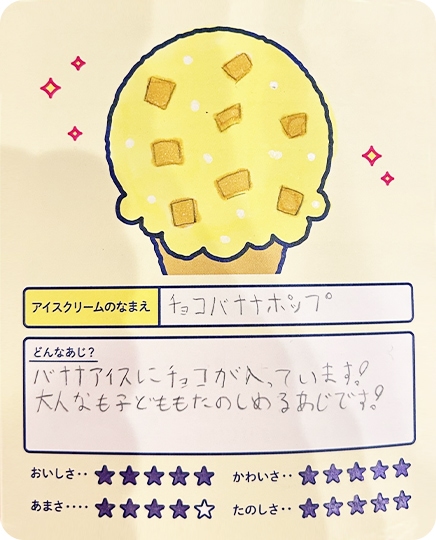 アイスクリームのなまえ チョコバナナポップ
どんなあじ？
バナナアイスにチョコが入っています！
大人なも子どももたのしめるあじです！
おいしさ‥ ★★★★★ かわいさ‥ ★★★★★
あまさ‥‥ ★★★★☆ たのしさ‥ ★★★★★